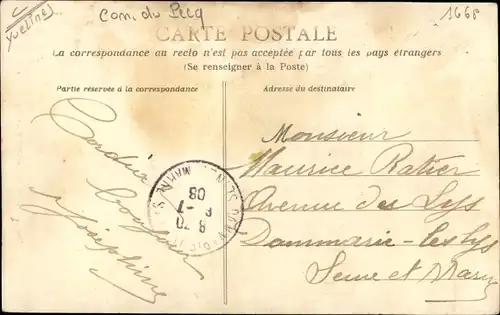 (Yvelines)
Com. du Pecq
1668
CARTE POSTALE
La correspondance au recto n'est pas acceptée par tous les pays étrangers
(Se renseigner à la Poste)
Partie réservée à la correspondance
Adresse du destinataire
Cordial
Bonjour
Joséphine
Monsieur
Maurice Ratier
Avenue des Lys
Dammarie-les-Lys
Seine et Marne